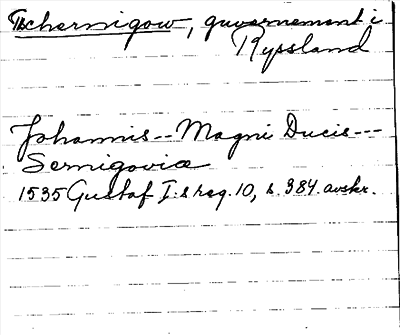 Tschernigow, guvernement i
Ryssland
Johannis -- Magni Ducis ---
Sernigovia
1535 Gustaf I:s reg. 10, s. 384. avskr.